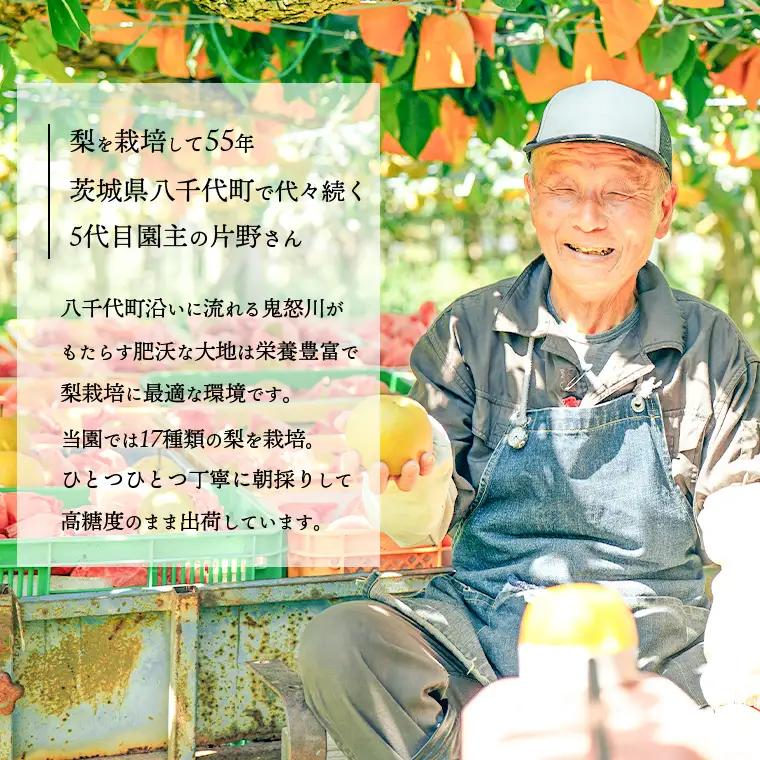 梨を栽培して55年
茨城県八千代町で代々続く
5代目園主の片野さん
八千代町沿いに流れる鬼怒川が
もたらす肥沃な大地は栄養豊富で
梨栽培に最適な環境です。
当園では17種類の梨を栽培。
ひとつひとつ丁寧に朝採りして
高糖度のまま出荷しています。